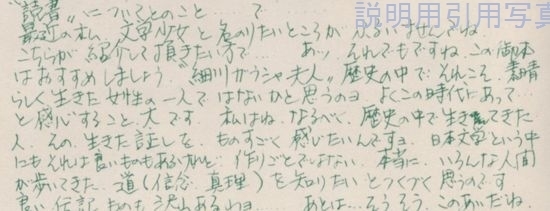 説明用引用写真
"読書"についてとのこと……で
最近の私、文学少女と名のりたいところがかいませんでね
こちらが紹介して頂きたい方で……あッ、それでもですね、この御本
はおすすめしましょう。"細川ガラシャ夫人"歴史の中で、それこそ、素晴
らしく生きた女性の一人ではないかと思うのョ よくこの時代にあって…
と感じること、大です。私はね、なるべく、歴史の中で生きてきた
人、その、生きた証しを、ものすごく感じたいんですョ。日本文学という中
にもそれは良いものもあるけれど、作りごとではない、本当に、いろんな人間
が歩いてきた、道(信念、真理)を知りたいとつくづく思うのです
良い伝記ものも沢山あるわョ……あとは…そうそう、このあいだね、